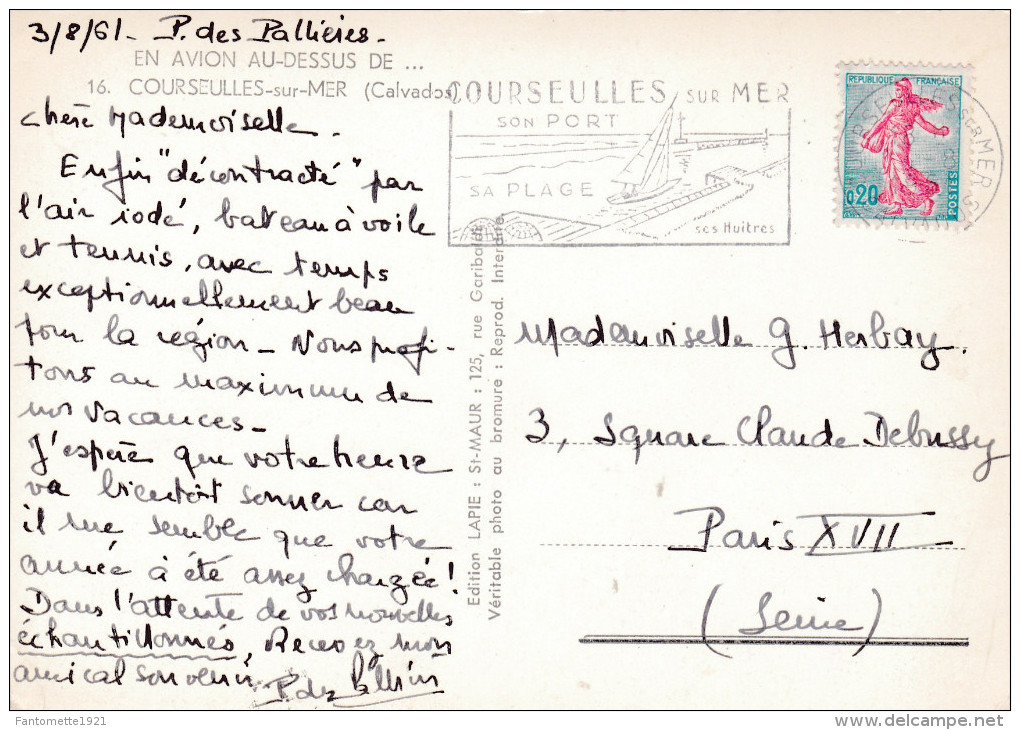 3/8/61- P. des Pallières-
EN AVION AU-DESSUS DE ...
16. COURSEULLES-sur-MER (Calvados)
chère Mademoiselle.
Enfin "décontracté" par
l'air iodé, bateau à voile
et tennis, avec temps
exceptionnellement beau
pour la région - Nous profi-
tons au maximum de
nos vacances-
J'espère que votre heure
va bientôt sonner car
il me semble que votre
année à été assez chargée!
Dans l'attente de vos nouvelles
échantillonnés, Recevez mon
amical souvenir
P. des Pallières
COURSEULLES SUR MER
SON PORT
SA PLAGE
ses Huitres
REPUBLIQUE FRANÇAISE
0,20
POSTES
Edition LAPIE : St-MAUR : 125, rue Garibaldi
Véritable photo au bromure : Reprod. Interdite
Mademoiselle G. Herbay.
3, Square Claude Debussy
Paris XVII
(Seine)
Fantomette1921
delcampe.net